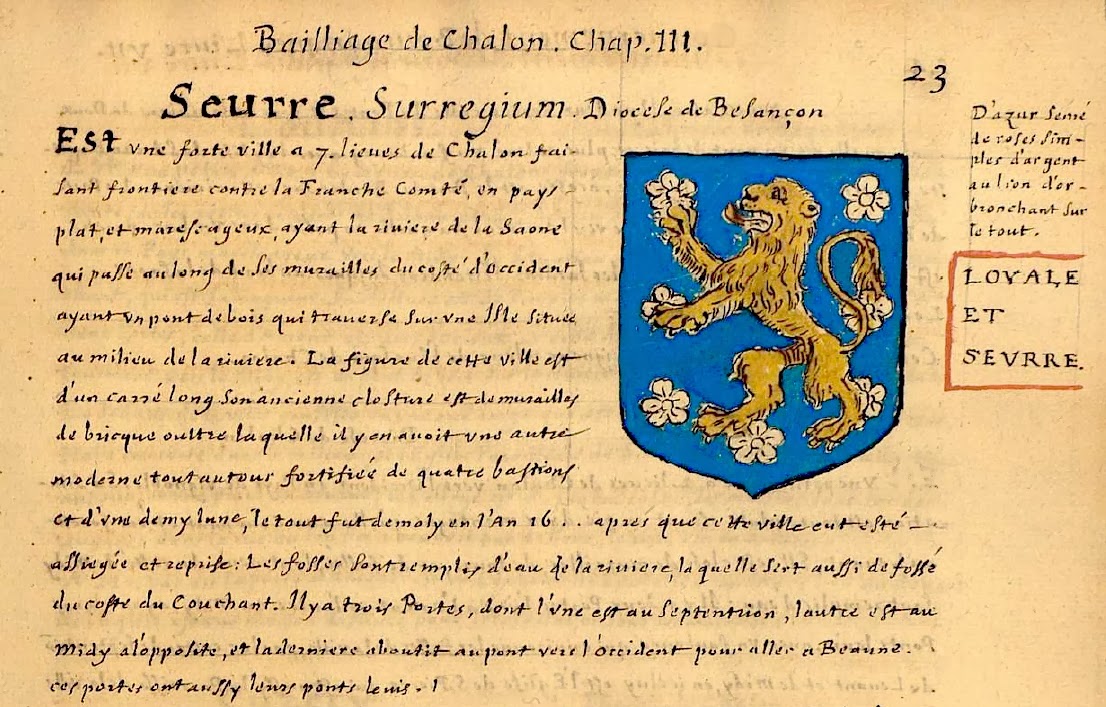 Bailliage de Chalon. Chap. III.
23
Seurre. Surregium. Diocese de Besançon
Est vne forte ville a 7. lieues de Chalon fai-
sant frontiere contre la Franche Comté, en pays
plat, et marescageux, ayant la riviere de la Saone
qui passe au long de ses murailles du costé d'Occident
ayant vn pont de bois qui traverse sur vne Isle située
au milieu de la riviere. La figure de cette ville est
d'un carré long son ancienne closture est de murailles
de bricque oultre laquelle il y en avoit vne autre
moderne tout autour fortifieé de quatre bastions
et d'vne demy lune, le tout fut demoly en l'An 16.. apres que cette ville eut esté
assiegée et reprise: Les fosses sont remplis d'eau de la riviere, laquelle sert aussi de fossé
du coste du Couchant. Il y a trois Portes, dont l'vne est au Septentrion, l'autre est au
Midy a l'opposite, et la derniere aboutit au pont vers l'Occident pour aller a Beaune.
ces portes ont aussy leurs ponts levis.
D'azur semé
de roses sim-
ples d'argent
au lion d'or-
bronchant sur
le tout.
LOVALE
ET
SEVRRE.